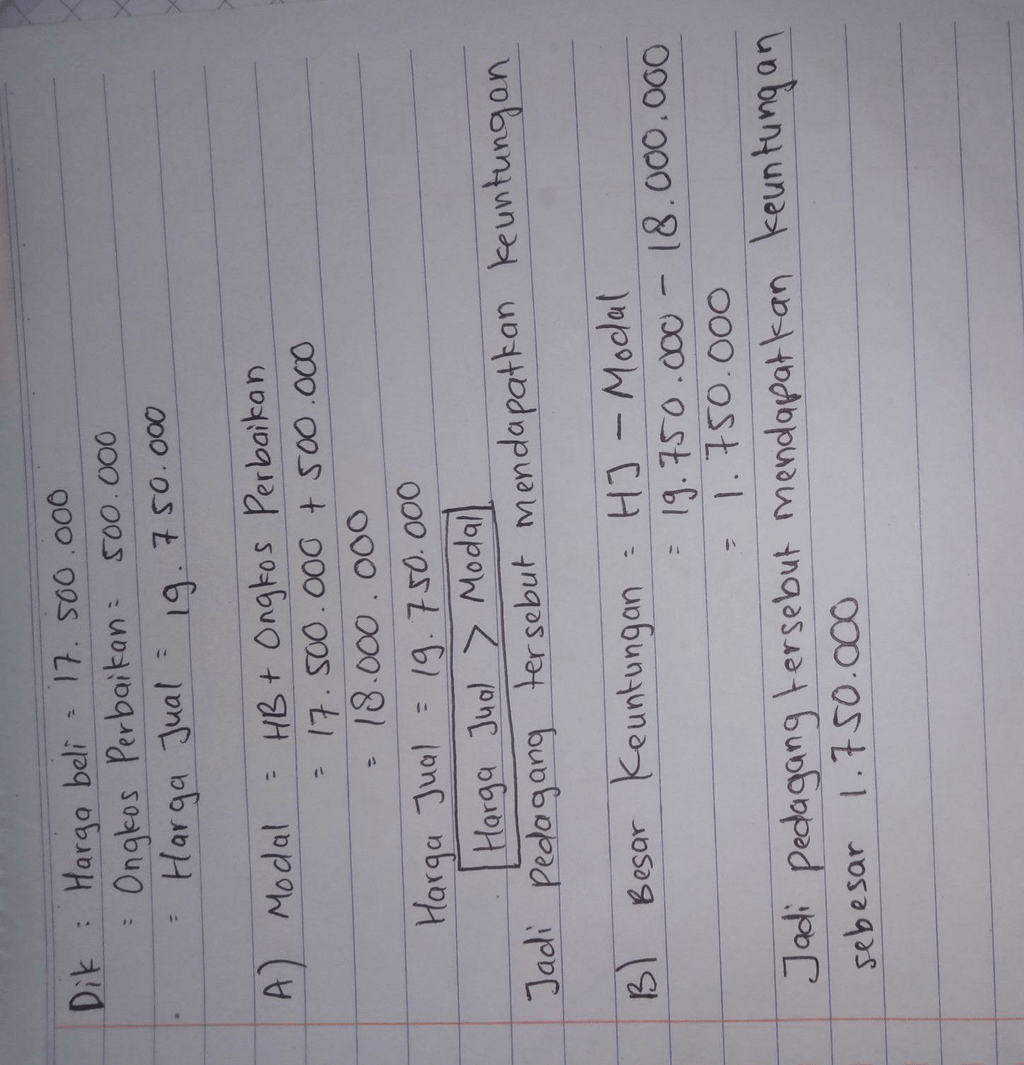 Dik : Harga beli = 17.500.000
= Ongkos Perbaikan = 500.000
= Harga Jual = 19.750.000
A) Modal = HB + Ongkos Perbaikan
= 17.500.000 + 500.000
= 18.000.000
Harga Jual = 19.750.000
Harga Jual > Modal
Jadi Pedagang tersebut mendapatkan keuntungan
B) Besar Keuntungan = HJ - Modal
= 19.750.000 - 18.000.000
= 1.750.000
Jadi Pedagang tersebut mendapatkan keuntungan
sebesar 1.750.000